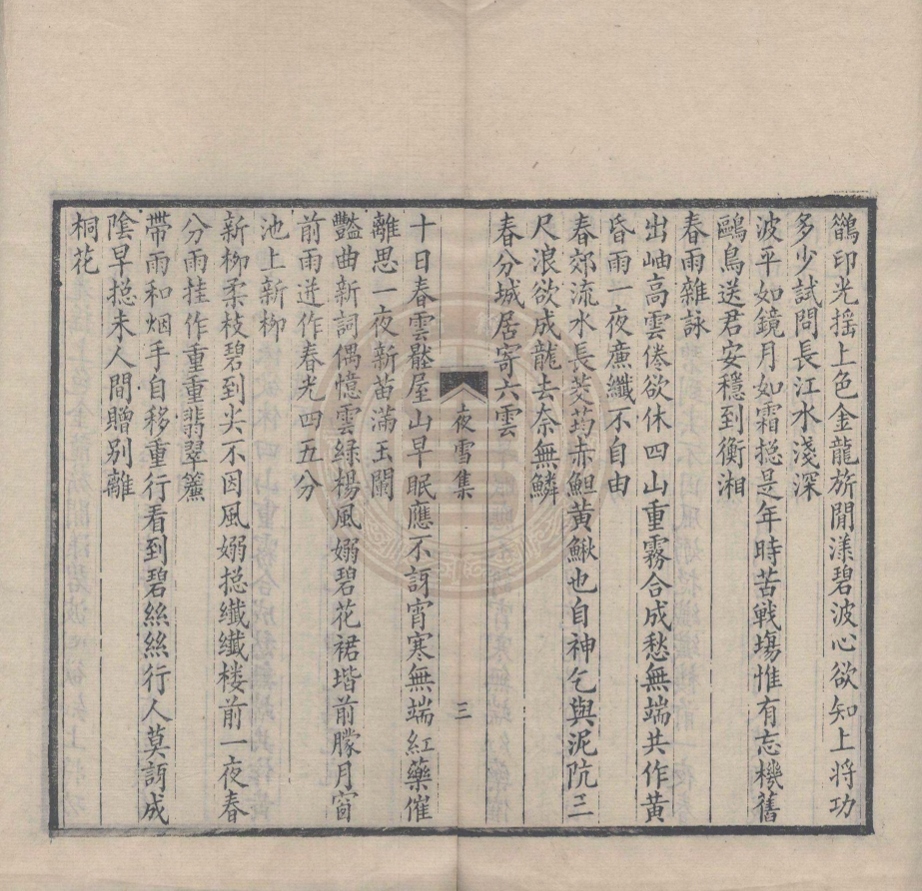 鵲印光搖上色金龍旂閒漾碧波心欲知上將功
多少試問長江水淺深
波平如鏡月如霜揔是年時苦戰塲惟有忘機舊
鷗鳥送君安穩到衡湘
春雨雜詠
出岫高雲倦欲休四山重霧合成愁無端共作黃
昏雨一夜廉纖不自由
春郊流水長茭芍赤鯉黃鰍也自神乞與泥阬三
尺浪欲成龍去奈無鱗
春分城居寄六雲
夜雪集
三
十日春雲壓屋山早眠應不訝宵寒無端紅藥催
離思一夜新苗滿玉闌
豔曲新詞偶憶雲綠楊風嫋碧花裙堦前朦月窗
前雨逬作春光四五分
池上新栁
新栁柔枝碧到尖不因風嫋揔纖纖楼前一夜春
分雨挂作重重翡翠簾
帶雨和烟手自移重行看到碧絲絲行人莫訝成
陰早揔未人間贈别離
桐花